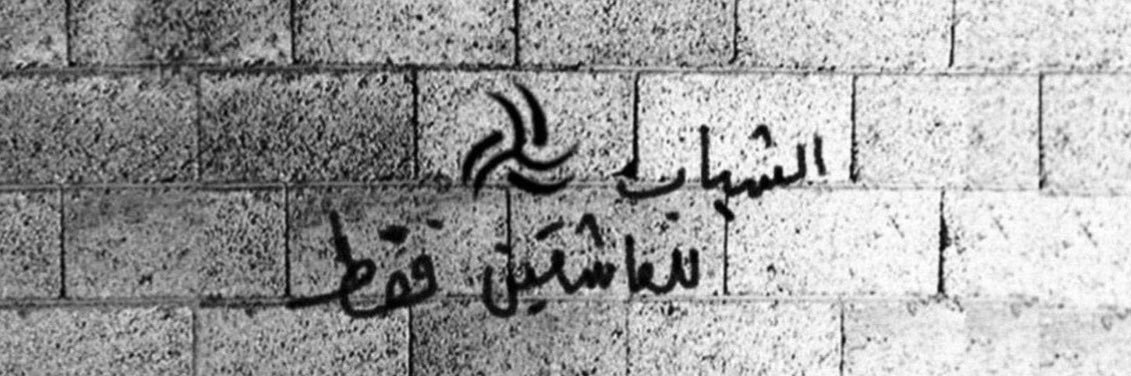 الشباب
للعاشقين فقط